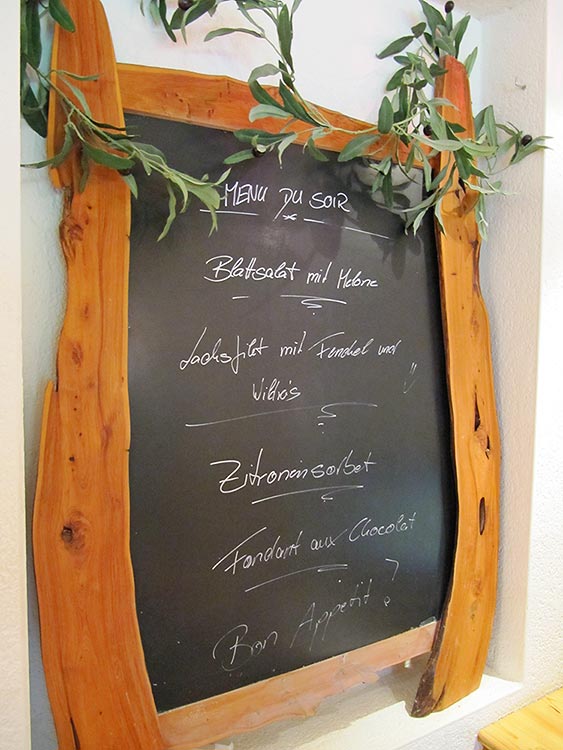 MENU DU SOIR
Blattsalat mit Melone
Lachsfilet mit Fenchel und
Zitronensorbet
Fondant aux Chocolat
Bon Appetit!